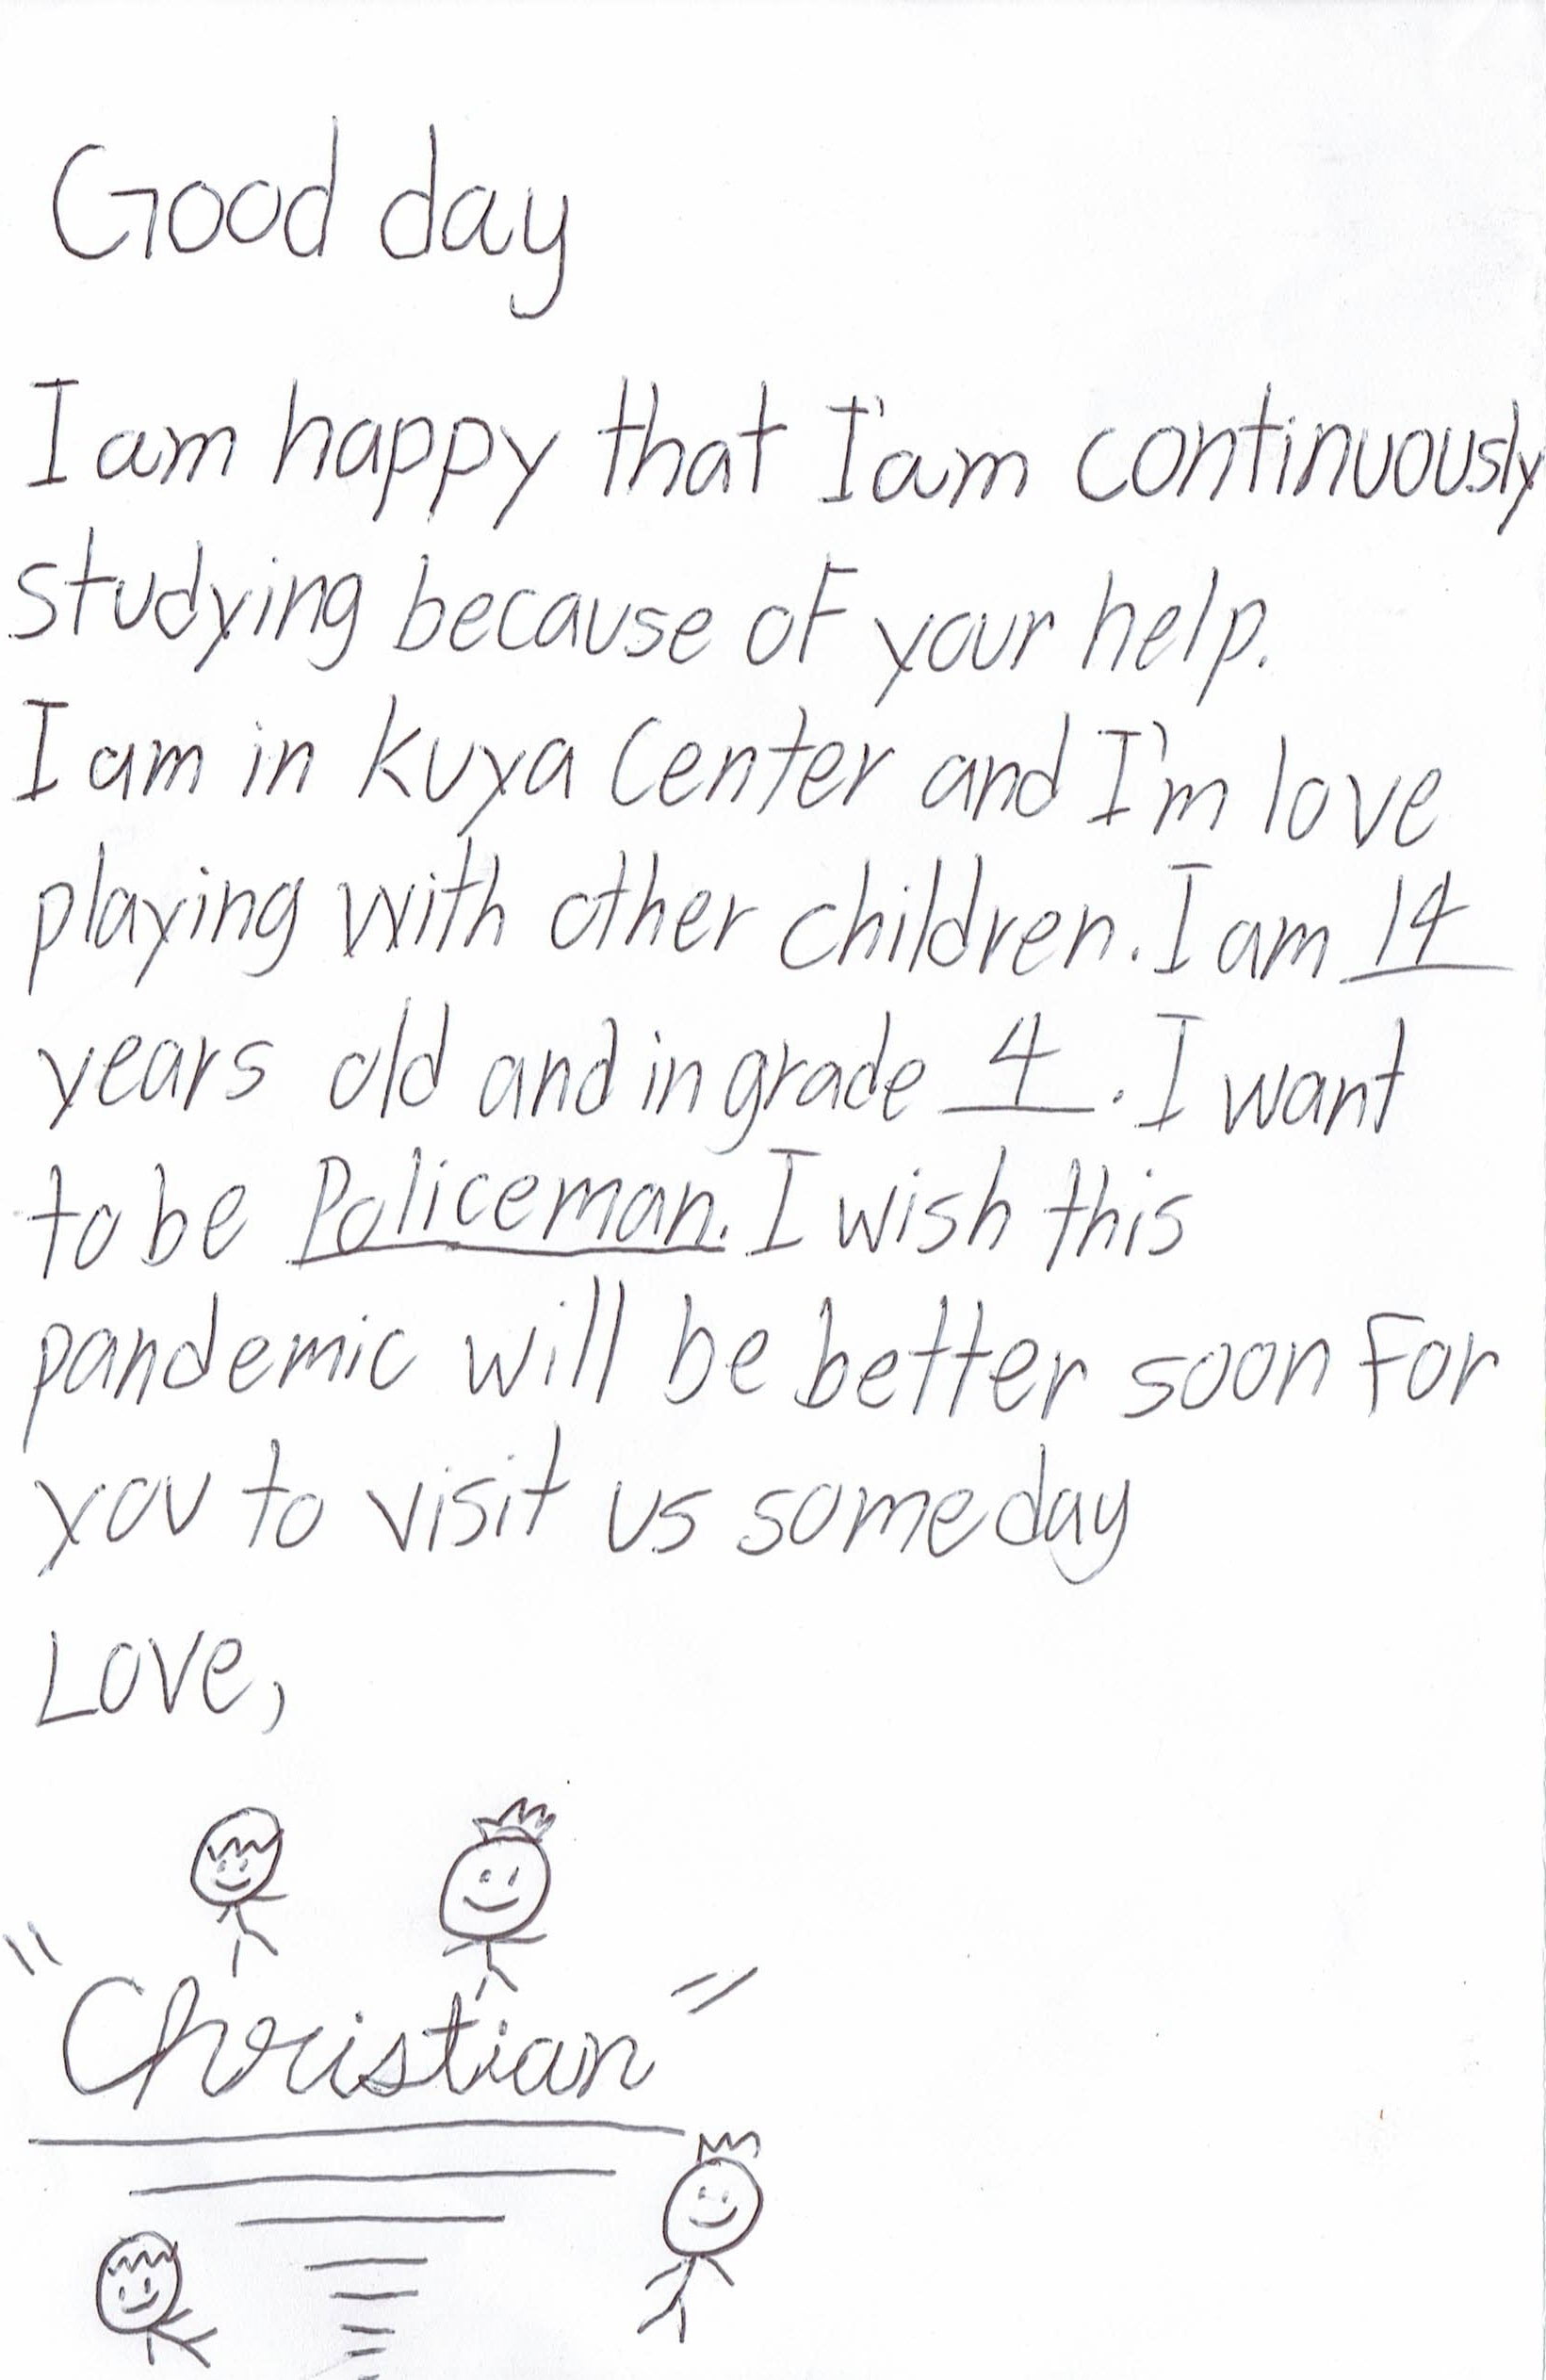 Good day
I am happy that I'am continuously
studying because of your help.
I am in kuya Center and I'm love
playing with other children. I am 14
years old and in grade 4. I want
to be Policeman. I wish this
pandemic will be better soon for
you to visit us someday
Love,
"Christian"